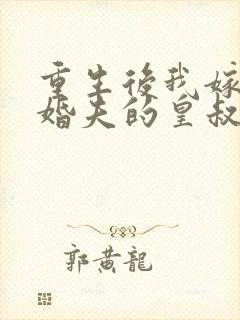 重生後我嫁
婚夫的皇叔
郭黃龍